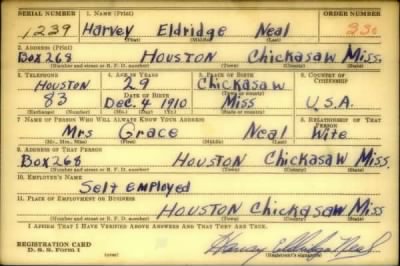 SERIAL NUMBER 1. NAME (Print) ORDER NUMBER
1239 Harvey Eldridge Neal
(First) (Middle) (Last)
2. ADDRESS (Print)
Box 268 Houston Chickasaw Miss.
(Number and street or R. F. D. number) (Town) (County) (State)
3. TELEPHONE 4. AGE IN YEARS 5. PLACE OF BIRTH 6. COUNTRY OF CITIZENSHIP
Houston 29 Chickasaw
(Town or county)
DATE OF BIRTH
83 Dec. 4 1910 Miss U.S.A.
(Exchange) (Number) (Mo.) (Day) (Yr.) (State or country)
7. NAME OF PERSON WHO WILL ALWAYS KNOW YOUR ADDRESS 8. RELATIONSHIP OF THAT PERSON
Mrs Grace Neal Wife
(Mr., Mrs., Miss) (First) (Middle) (Last)
9. ADDRESS OF THAT PERSON
Box 268 Houston Chickasaw Miss.
(Number and street or R. F. D. number) (Town) (County) (State)
10. EMPLOYER'S NAME
Self employed
11. PLACE OF EMPLOYMENT OR BUSINESS
Houston Chickasaw Miss
(Number and street or R. F. D. number) (Town) (County) (State)
I AFFIRM THAT I HAVE VERIFIED ABOVE ANSWERS AND THAT THEY ARE TRUE.
REGISTRATION CARD
D. S. S. Form 1 Harvey Eldridge Neal
(Registrant's signature)